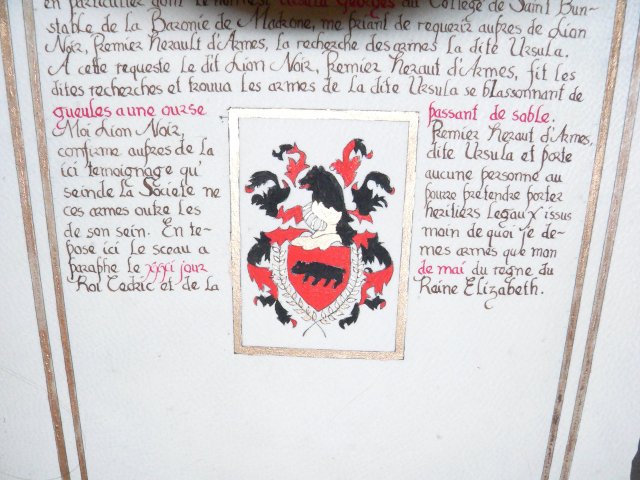 en particulier dont le nom est Ursula Georges du College de Saint Bun-
stable de la Baronie de Madrone, me priant de requerir aupres de Lion
Noir, Premier Herault d'Armes, la recherche des armes la dite Ursula.
A cette requeste le dit Lion Noir, Premier Heraut d'Armes, fit les
dites recherches et trouua les armes de la dite Ursula se blasonnant de
gueules a une ourse passant de sable.
Moi Lion Noir, Premier Heraut d'Armes,
confirme aupres de la dite Ursula et porte
ici temoignage qu' aucune personne au
sein de la Societe ne pourra pretendre porter
ces armes outre les heritiers legaux issus
de son sein. En te- moin de quoi je de-
pose ici le sceau a mes armes que mon
paraphe le xxxi jour de mai du regne du
Roi Cedric et de la Raine Elizabeth.